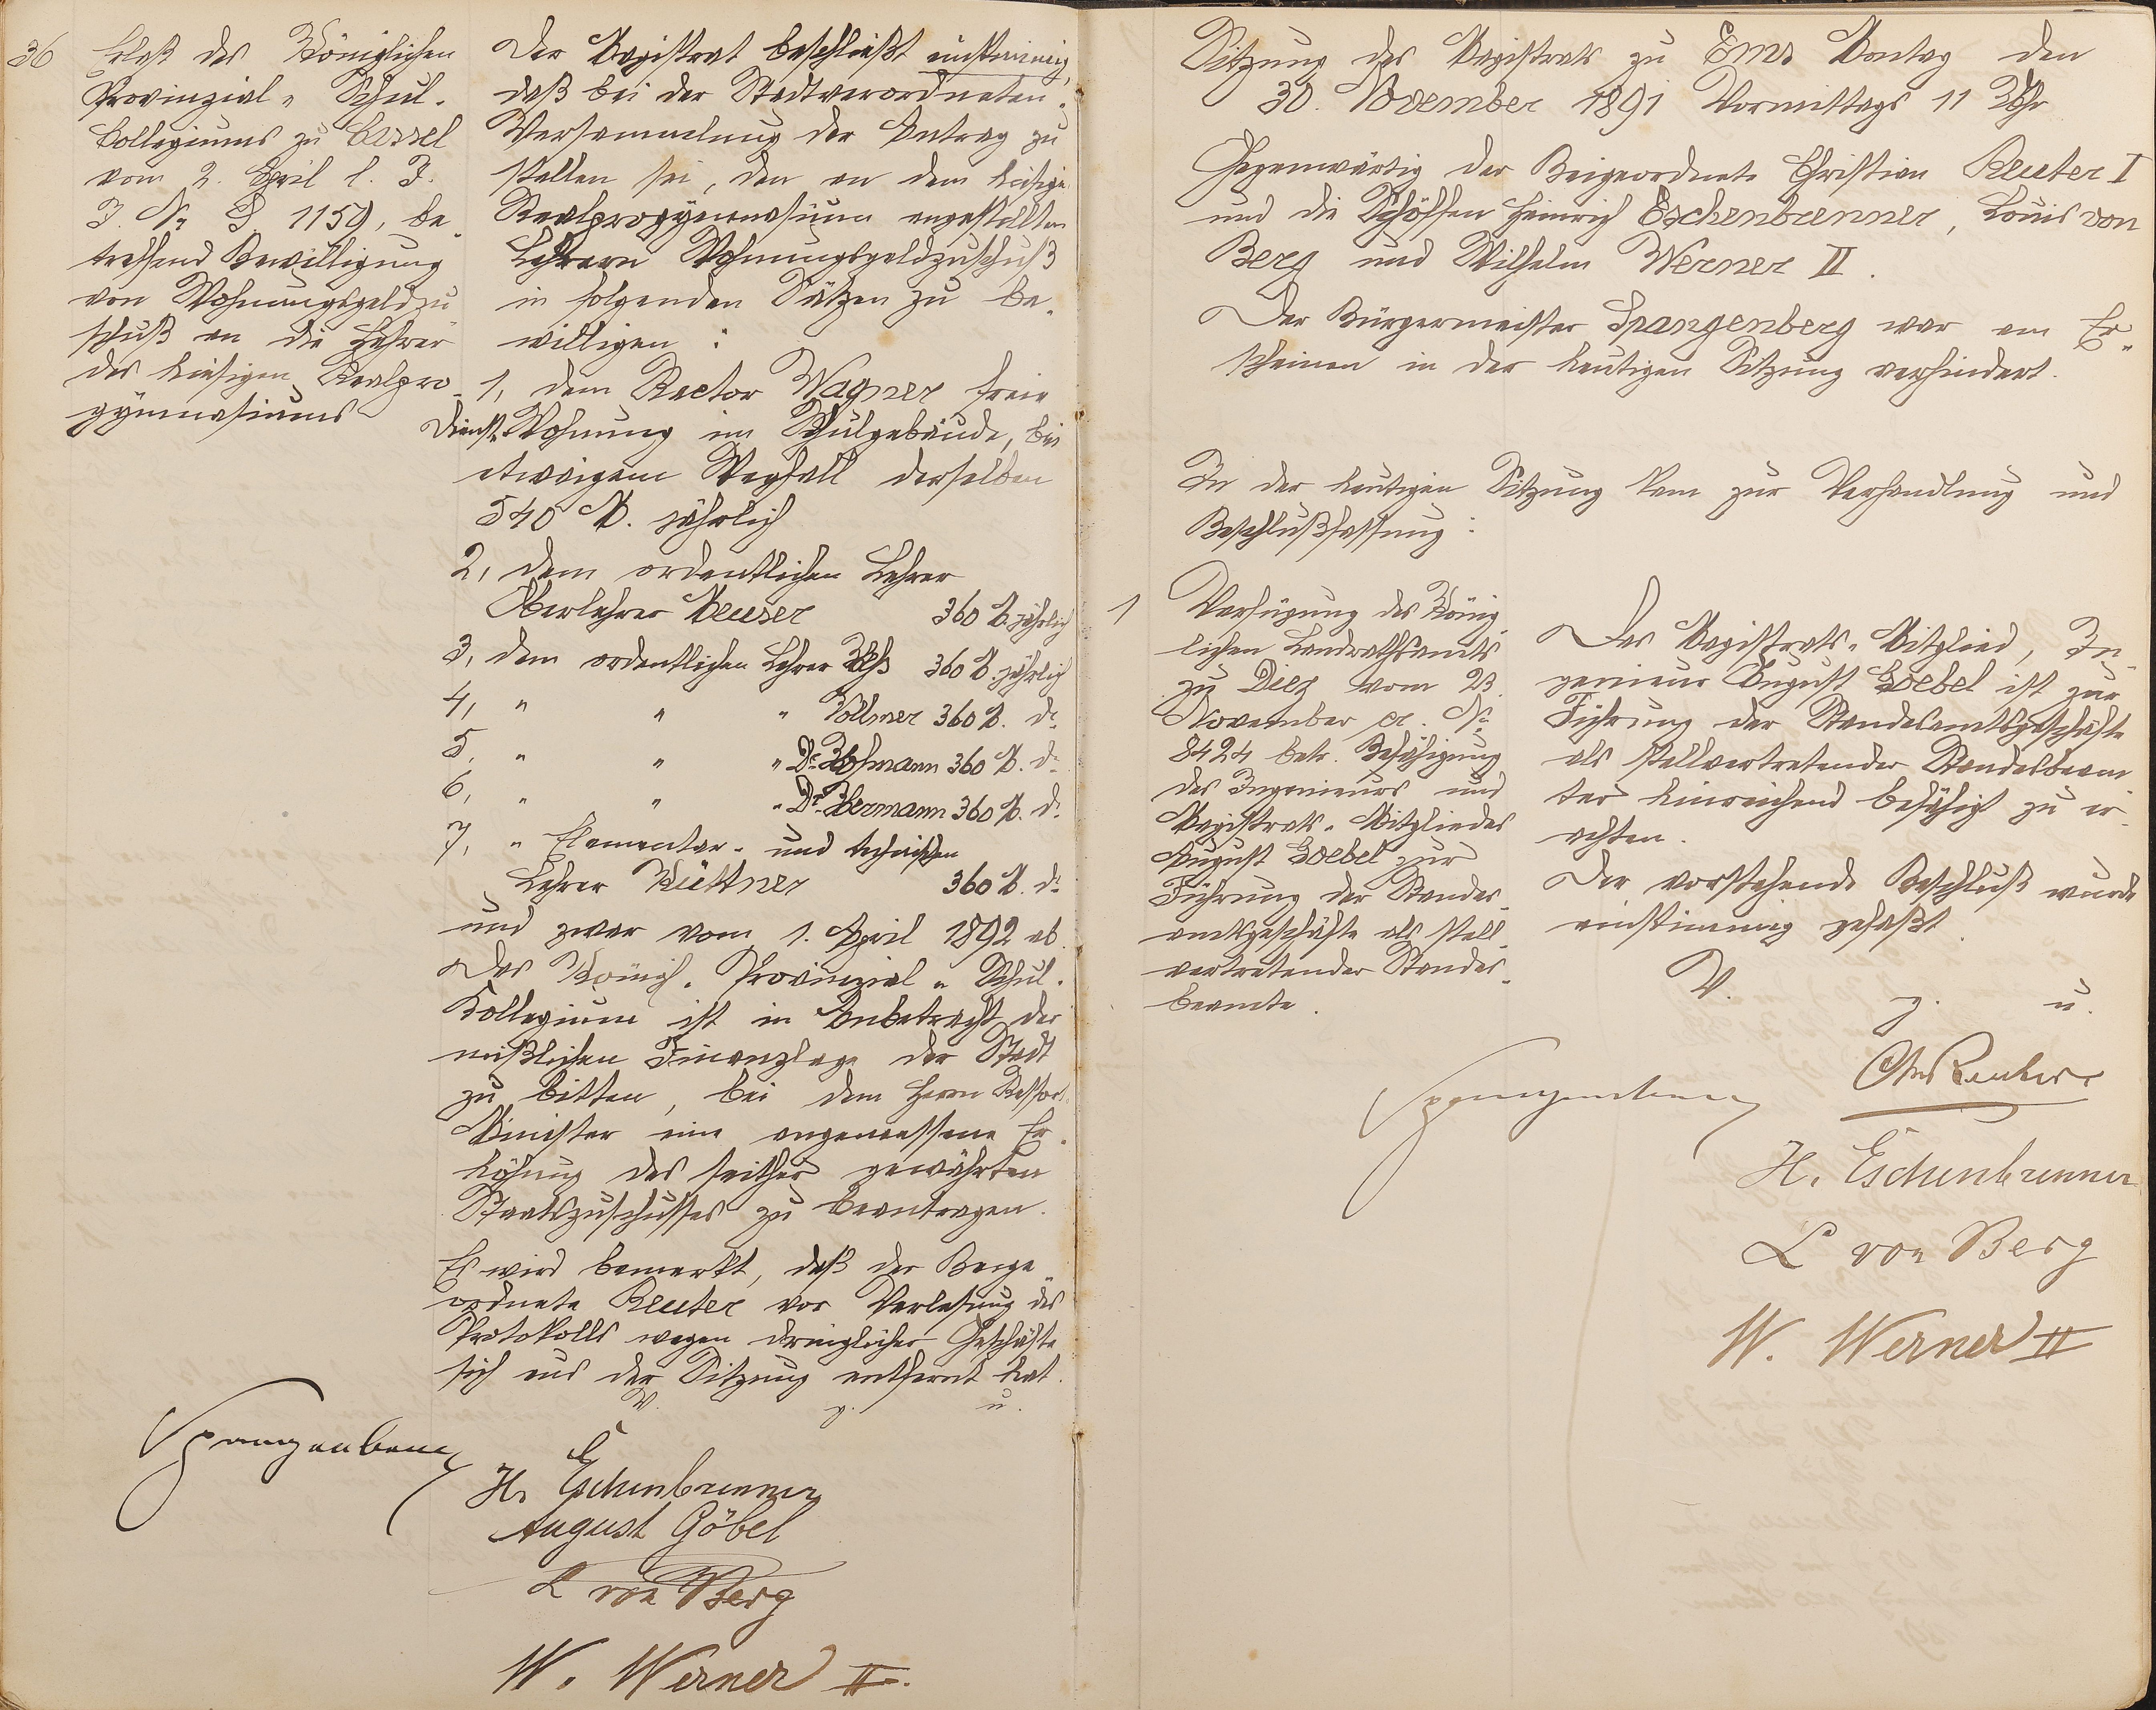 36
Erlaß des Königlichen
Provinzial-Schul-
Collegiums zu Cassel
vom 2. April l. J.
J. No. S. 1159, be-
treffend Bewilligung
von Wohnungsgeldzu-
schuß an die Lehrer
des hiesigen Realpro-
gymnasiums
Der Magistrat beschließt einstimmig,
daß bei der Stadtverordneten-
Versammlung der Antrag zu
stellen sei, den an dem hiesigen
Realprogymnasium angestellten
Lehrern Wohnungsgeldzuschuß
in folgenden Sätzen zu be-
willigen:
1, dem Rector Wagner freie
Dienst-Wohnung im Schulgebäude, bei
etwaigem Wegfall derselben
540 M. jährlich
2, dem ordentlichen Lehrer
Oberlehrer Meuser 360 M. jährlich
3, dem ordentlichen Lehrer Heß 360 M. jährlich
4, " " " Vollmer 360 M. do.
5, " " " Dr. Hofmann 360 M. do.
6, " " " Dr. Hermann 360 M. do.
7, " Elementar- und technischen
Lehrer Küttner 360 M. do.
und zwar vom 1. April 1892 ab.
Das Königl. Provinzial-Schul-
Kollegium ist in Anbetracht der
mißlichen Finanzlage der Stadt
zu bitten, bei dem Herrn Ressort-
Minister eine angemessene Er-
höhung des seither gewährten
Staatszuschusses zu beantragen.
Es wird bemerkt, daß der Beige-
ordnete Reuter vor Verlesung des
Protokolls wegen dringlicher Geschäfte
sich aus der Sitzung entfernt hat.
V. g. u.
Spangenberg
H. Eschenbrenner
August Göbel
L von Berg
W. Werner II.
Sitzung des Magistrats zu Ems Montag den
30. November 1891 Vormittags 11 Uhr
Gegenwärtig der Beigeordnete Christian Reuter I
und die Schöffen Heinrich Eschenbrenner, Louis von
Berg und Wilhelm Werner II.
Der Bürgermeister Spangenberg war am Er-
scheinen in der heutigen Sitzung verhindert.
In der heutigen Sitzung kam zur Verhandlung und
Beschlußfassung:
1
Verfügung des König-
lichen Landrathsamts
zu Diez vom 23.
November cr. No.
8424 betr. Befähigung
des Ingenieurs und
Magistrats-Mitgliedes
August Goebel zur
Führung der Standes-
amtsgeschäfte als stell-
vertretender Standes-
beamte.
Das Magistrats-Mitglied, In-
genieur August Goebel ist zur
Führung der Standesamtsgeschäfte
als stellvertretender Standesbeam-
ter hinreichend befähigt zu er-
achten.
Der vorstehende Beschluß wurde
einstimmig gefaßt.
V. g. u.
Spangenberg
Chr Reuter
H. Eschenbrenner
L von Berg
W. Werner II